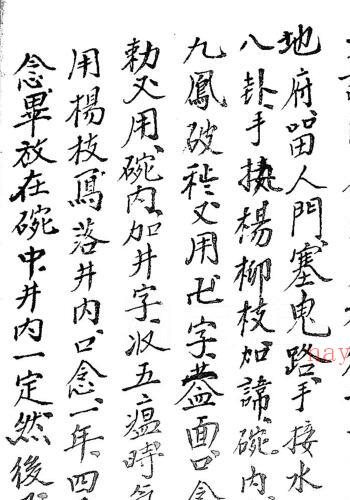 地府、留人門、塞鬼路、手接水
八卦、手執楊柳枝、加諱、碗内、
九鳳破秽、又用卍字、蓋面、口念
勅、又用、碗内、加井字、收五瘟時氣
用楊枝、寫落井内、口念、一年、四
念畢放在碗中、井内一定、然後
nay